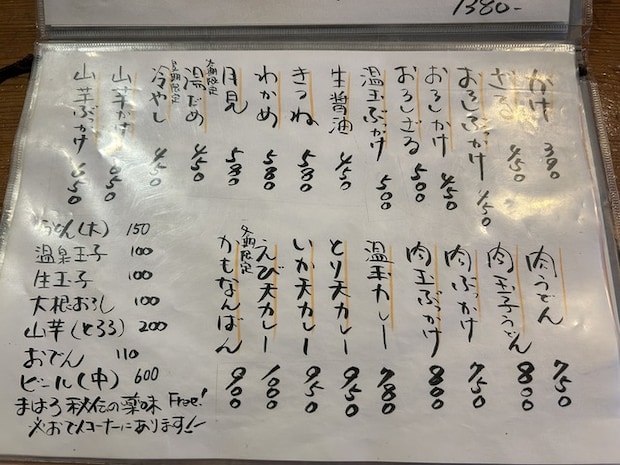 1380-
かけ 390
ざる 450
おろしぶっかけ 450
おろしかけ 450
おろしざる 500
温玉ぶっかけ 500
生醤油 450
きつね 580
わかめ 580
月見 580
冬期限定 湯だめ 450
夏期限定 冷やし 450
山芋かけ 650
山芋ぶっかけ 650
肉うどん 750
肉玉子うどん 800
肉ぶっかけ 750
肉玉ぶっかけ 800
温玉カレー 780
とり天カレー 950
いか天カレー 950
えび天カレー 1000
冬期限定 かもなんばん 900
うどん(大) 150
温泉玉子 100
生玉子 100
大根おろし 100
山芋(とろろ) 200
おでん 110
ビール(中) 600
まはろ秘伝の薬味 Free!
※おでんコーナーにあります!